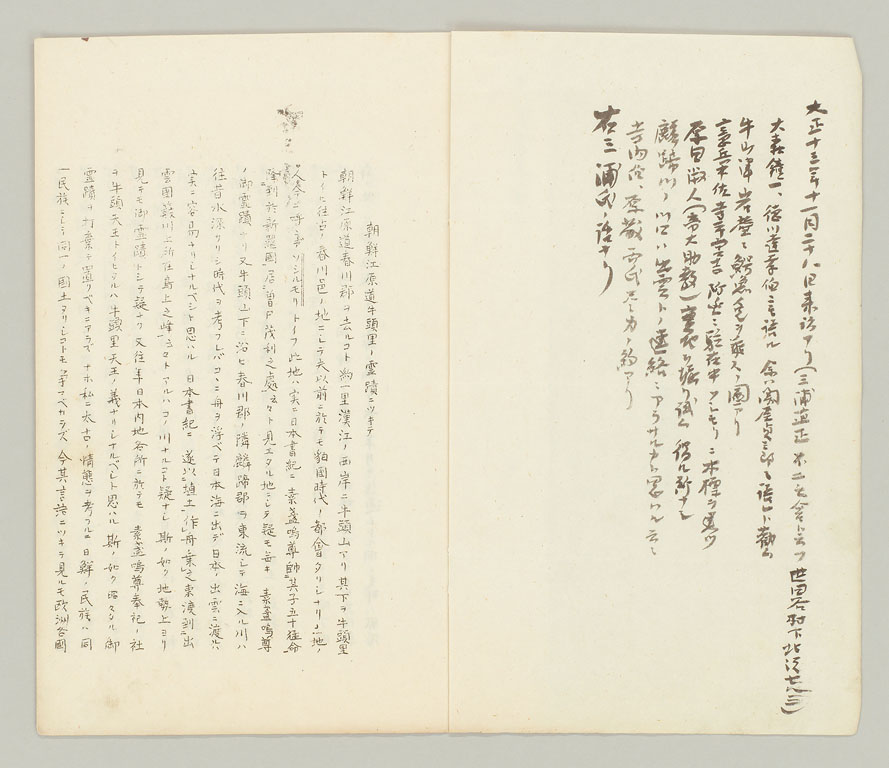 大正十三年十一月二十八日来訪アリ(三浦直正 不二教会ト云フ 世田谷村下北沢七八三)
大森鐘一、徳川達孝伯ニモ語ル 余ハ関屋貞三郎ニ語レト勧ム
牛山津岩壁ニ鰐ノ ヲ ノ図アリ
 ニ駐在中 ソシモリニ木標ヲ建ツ
原田淑人(帝大助教) ヲ堀リ試ム 得ル所ナシ
麟蹄川ノ川口ハ出雲トノ連絡ニアラサルカト思ハル云々
寺内伯、 両氏尽力ノ約アリ
右三浦氏ノ語ナリ
朝鮮江原道牛頭里ノ霊蹟ニツキテ
朝鮮江原道春川郡ヲ去ルコト約一里漢江ノ西岸ニ牛頭山アリ其下ヲ牛頭里
トイヒ往古ノ春川邑ノ地ニシテ夫以前ニ於テモ貊国時代ノ都会タリシナリ此地ノ
人今ニ呼ンデソシルモリトイフ此地ハ実ニ日本書紀ニ 素盞嗚尊帥其子五十猛命
降到於新羅國居曽尸茂利之處云々ト見エタル地ニシテ疑モ無キ 素盞嗚尊
ノ御霊蹟ナリ又牛頭山下ニ沿ヒ春川郡ノ隣麟蹄郡ヲ東流シテ海ニ入ル川ハ
往昔水深カリシ時代ヲ考フレバコヽニ舟ヲ浮ベテ日本海ニ出デ日本ノ出雲ニ渡ルハ
実ニ容易ナリシナルベシト思ハル 日本書紀ニ 遂以埴土作舟乗之東渡到出
雲國簸川上所在鳥上之峰云々トアルハコノ川ナルコト疑ナシ斯ノ如ク地勢上ヨリ
見テモ御霊蹟トシテ疑ナク又往年日本内地各所ニ於テモ 素盞嗚尊奉祀ノ社
ヲ牛頭天王トイヒタルハ牛頭里天王ノ義ナリシナルベシト思ハル斯ノ如ク昭々タル御
霊蹟ヲ打棄テ置クベキニアラズ ナホ私ニ太古ノ情態ヲ考フルニ日鮮ノ民族ハ同
一民族ニシテ同一ノ國土タリシコトモ争フベカラズ 今其言語ニツキテ見ルモ欧洲各國